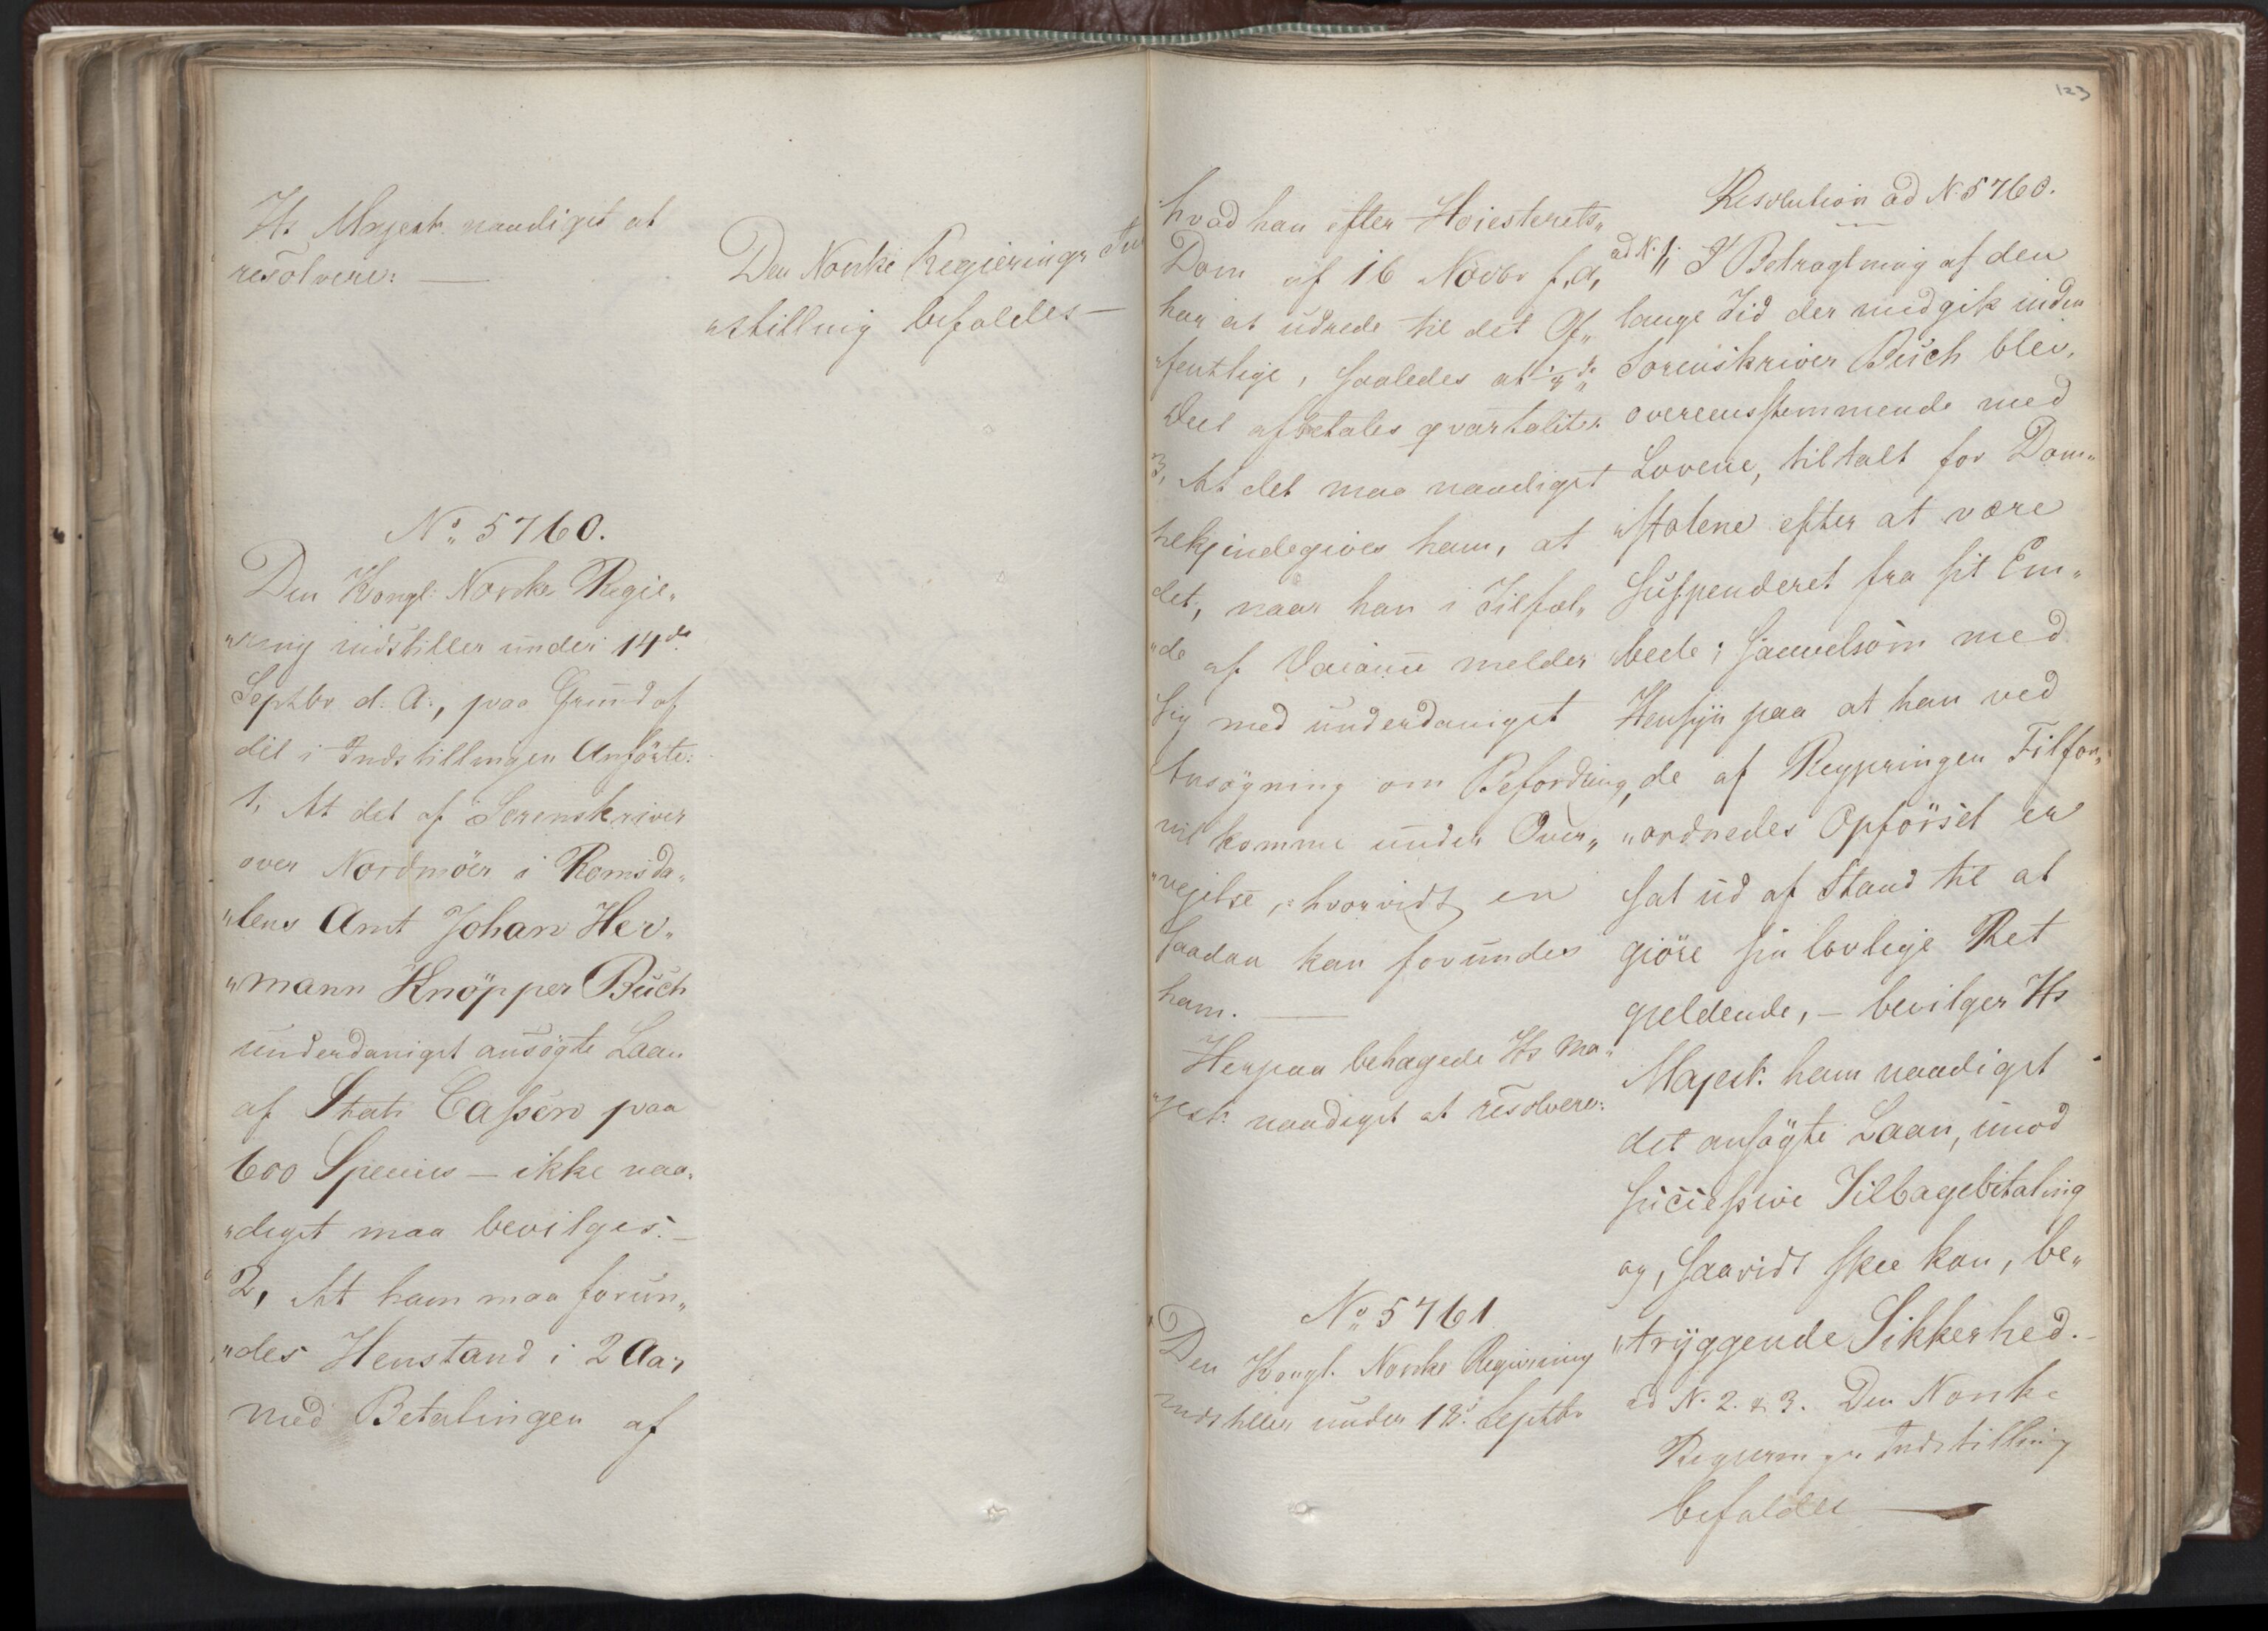 Hs Majest. naadigst at
resolvere: —
Den Norske Regierings In
„stilling befaldes —
No. 5760.
Den Kongl: Norske Regie„
„ring indstiller under 14de
Septbr d: A:, paa Grund af
det i Indstillingen Anförte:
1, At det af Sorenskriver
over Nordmöer i Romsda„
„lens Amt Johan Her„
„mann Knöpper Büch
underdanigst ansögte Laan
af Stats Cassen paa
600 Species — ikke naa„
„digst maa bevilges. —
2, At ham maa forun„
„des Henstand i 2 Aar
med Betalingen af
123
hvad han efter Hoiesterets„
Dom af 16 Novbr f. A,
har at udrede til det Of„
„fentlige, saaledes at 1/8de
Deel afbetales qvartaliter.
3, At det maa naadigst
tilkjendegives ham, at
det, naar han i Tilfæl„
„de af Vacance melder
sig med underdanigst
Ansögning om Befordring,
vil komme under Over„
„vejelse, hvorvidt en
saadan kan forundes
ham. —
Herpaa behagede Hs Ma„
„jest: naadigst at resolvere:
No. 5761
Den Kongl. Norske Regiering
indstiller under 18de Septbr
Resolution ad No 5760.
ad No. 1. I Betragtning af den
lange Tid der medgik inden
Sorenskriver Büch blev,
overeensstemmende med
Lovene, tiltalt for Dom„
„stolene efter at være
suspenderet fra sit Em„
bede; saavelsom med
Hensÿn paa at han ved
de af Regjeringen Tilfor„
„ordnedes Opförsel er
sat ud af Stand til at
giöre sin lovlige Ret
gjeldende, — bevilger Hs
Majest: ham naadigst
det ansögte Laan, imod
successive Tilbagebetaling
og, saavidt skee kan, be„
„trÿggende Sikkerhed. —
ad No. 2. & 3. Den Norske
Regierings Indstilling
befaldes —